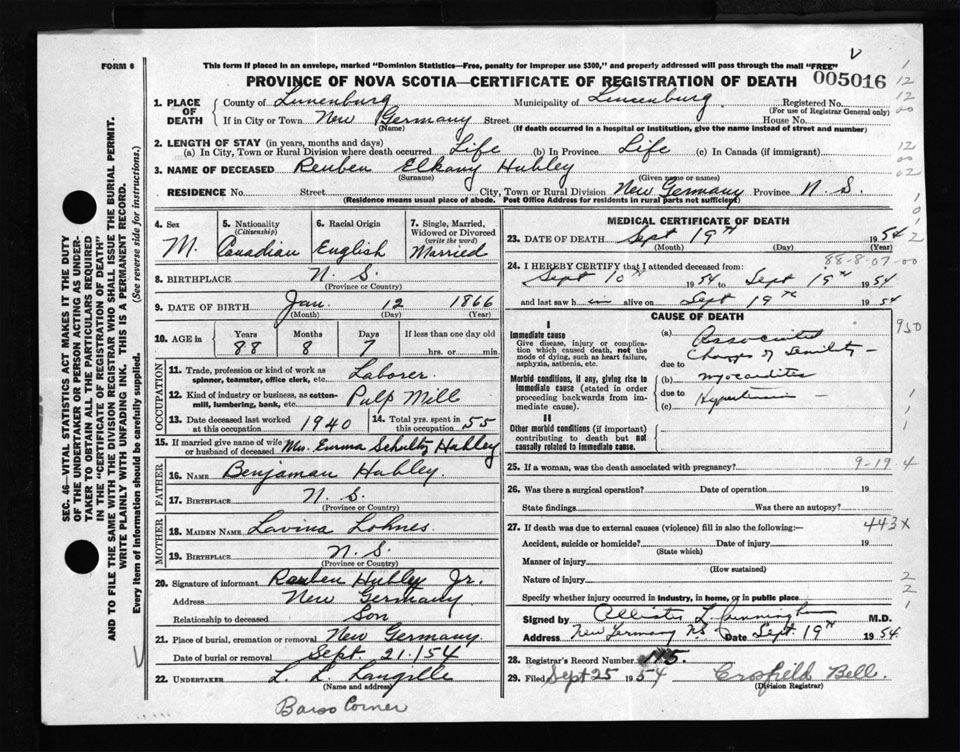 FORM 6
This form if placed in an envelope, marked "Dominion Statistics—Free, penalty for improper use $300," and properly addressed will pass through the mail "FREE"
PROVINCE OF NOVA SCOTIA—CERTIFICATE OF REGISTRATION OF DEATH 005016
1. PLACE OF DEATH
County of Lunenburg Municipality of Lunenburg Registered No.
(For use of Registrar General only)
If in City or Town New Germany Street House No.
(Name) (If death occurred in a hospital or institution, give the name instead of street and number)
2. LENGTH OF STAY (in years, months and days)
(a) In City, Town or Rural Division where death occurred Life (b) In Province Life (c) In Canada (if immigrant)
3. NAME OF DECEASED Reuben Elkany Hubley
(Surname) (Given name or names)
RESIDENCE No. Street City, Town or Rural Division New Germany Province N. S.
(Residence means usual place of abode. Post Office Address for residents in rural parts not sufficient)
4. Sex M.
5. Nationality (Citizenship) Canadian
6. Racial Origin English
7. Single, Married, Widowed or Divorced (write the word) Married
8. BIRTHPLACE N. S.
(Province or Country)
9. DATE OF BIRTH Jan. 12 1866
(Month) (Day) (Year)
10. AGE in Years Months Days If less than one day old
88 8 7 hrs. or min.
OCCUPATION
11. Trade, profession or kind of work as spinner, teamster, office clerk, etc. Laborer.
12. Kind of industry or business, as cotton-mill, lumbering, bank, etc. Pulp Mill
13. Date deceased last worked at this occupation 1940
14. Total yrs. spent in this occupation 55
15. If married give name of wife or husband of deceased Mrs. Emma Schultz Hubley
FATHER
16. NAME Benjaman Hubley.
17. BIRTHPLACE N. S.
(Province or Country)
MOTHER
18. MAIDEN NAME Lavina Lohnes.
19. BIRTHPLACE N. S.
(Province or Country)
20. Signature of informant Reuben Hubley Jr.
Address New Germany
Relationship to deceased Son
21. Place of burial, cremation or removal New Germany.
Date of burial or removal Sept. 21. 154
22. UNDERTAKER L. L. Langille
(Name and address)
Barss Corner
MEDICAL CERTIFICATE OF DEATH
23. DATE OF DEATH Sept 19th 1954
(Month) (Day) (Year)
88-8-07-00
24. I HEREBY CERTIFY that I attended deceased from:
Sept 10th 1954 to Sept 19th 1954
and last saw him alive on Sept 19th 1954
CAUSE OF DEATH
I
Immediate cause
Give disease, injury or complication which caused death, not the mode of dying, such as heart failure, asphyxia, asthenia, etc.
(a) Associated
Changes of Senility
due to
Morbid conditions, if any, giving rise to immediate cause (stated in order proceeding backwards from immediate cause).
(b) myocarditis
due to
Hypertension
(c)
Other morbid conditions (if important) contributing to death but not causally related to immediate cause.
950
25. If a woman, was the death associated with pregnancy?
9-19-4
26. Was there a surgical operation? Date of operation 19
State findings Was there an autopsy?
27. If death was due to external causes (violence) fill in also the following:—
443X
Accident, suicide or homicide? Date of injury 19
(State which)
Manner of injury
(How sustained)
Nature of injury
Specify whether injury occurred in industry, in home, or in public place
Signed by Allister L. Cunningham M.D.
Address New Germany NS Date Sept. 19th 1954.
28. Registrar's Record Number 175.
29. Filed Sept 25 1954 Crosfield Bell.
(Division Registrar)
SEC. 46—VITAL STATISTICS ACT MAKES IT THE DUTY
OF THE UNDERTAKER OR PERSON ACTING AS UNDERTAKER TO OBTAIN ALL THE PARTICULARS REQUIRED
IN THE "CERTIFICATE OF REGISTRATION OF DEATH"
AND TO FILE THE SAME WITH THE DIVISION REGISTRAR WHO SHALL ISSUE THE BURIAL PERMIT.
WRITE PLAINLY WITH UNFADING INK. THIS IS A PERMANENT RECORD.
Every item of information should be carefully supplied. (See reverse side for instructions.)